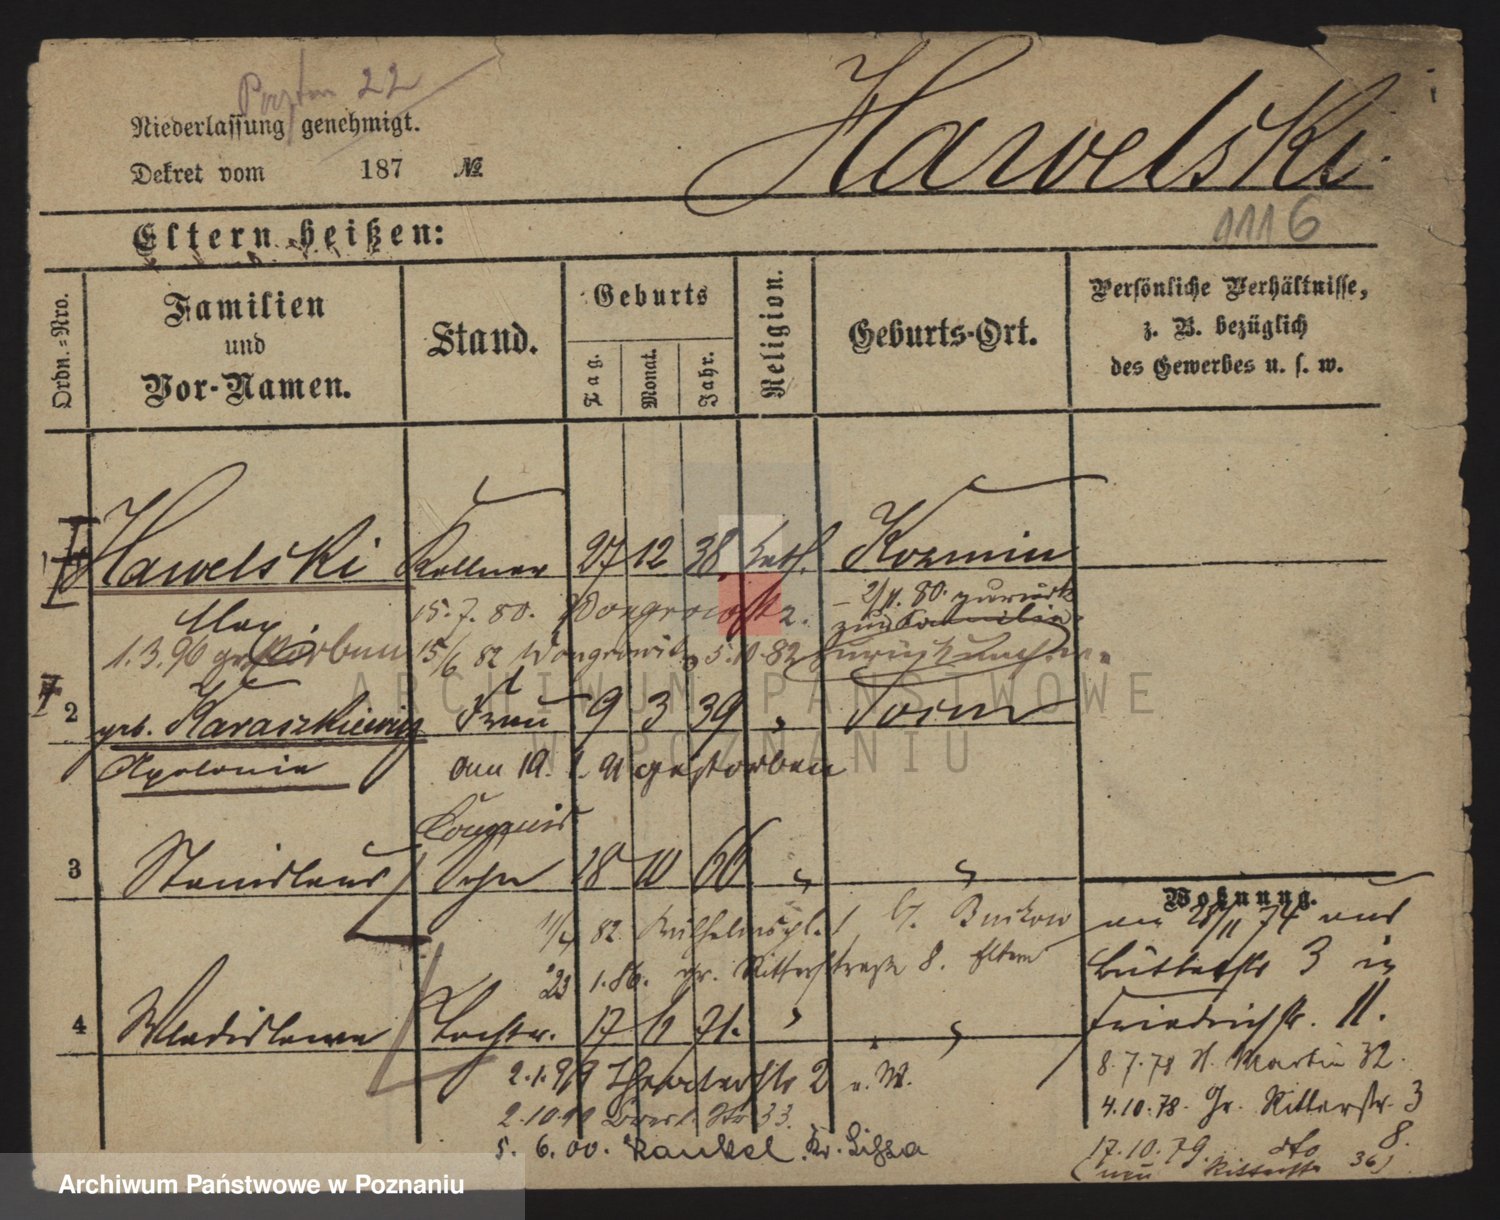 22
Niederlassung genehmigt.
Dekret vom 187 №
Hawelski
1116
Eltern heißen:
Ordn.=Nro.
Familien
und
Vor-Namen.
Stand.
Geburts
Tag.
Monat.
Jahr.
Religion.
Geburts-Ort.
Persönliche Verhältnisse,
z. B. bezüglich
des Gewerbes u. s. w.
Hawelski Kellner 27 12 38 kath. Kozmin
Max 15.7.80. Wongrowitz. 2/11.80. zurück
zur Familie.
1.3.96 gestorben 15/6 82 Wongrowitz 5.10.82
2 geb. Karaszkiewicz Frau 9 3 39 "
Apolonia am 19. 1. 91 gestorben
3 Stanislaus Sohn 28 10 66 " "
Wohnung.
11/4 82. Wilhelmspl. 1 b. Buckow
am 28/11 74 aus
23 1.86. gr. Ritterstraße 8. Eltern
Büttelstr 3 in
4 Wladislawa Tochter. 17 6 71. " "
Friedrichstr. 11.
2.1.99 Theaterstr 2 v. W.
8.7.78 St. Martin 32.
2.10.99 Str 33.
4.10.78. Gr. Ritterstr. 3
5. 6. 00. Kankel. Kr. Lissa
17.10.79. dto 8.
(neu Ritterstr 36)
ARCHIWUM PAŃSTWOWE
W POZNANIU
Archiwum Państwowe w Poznaniu